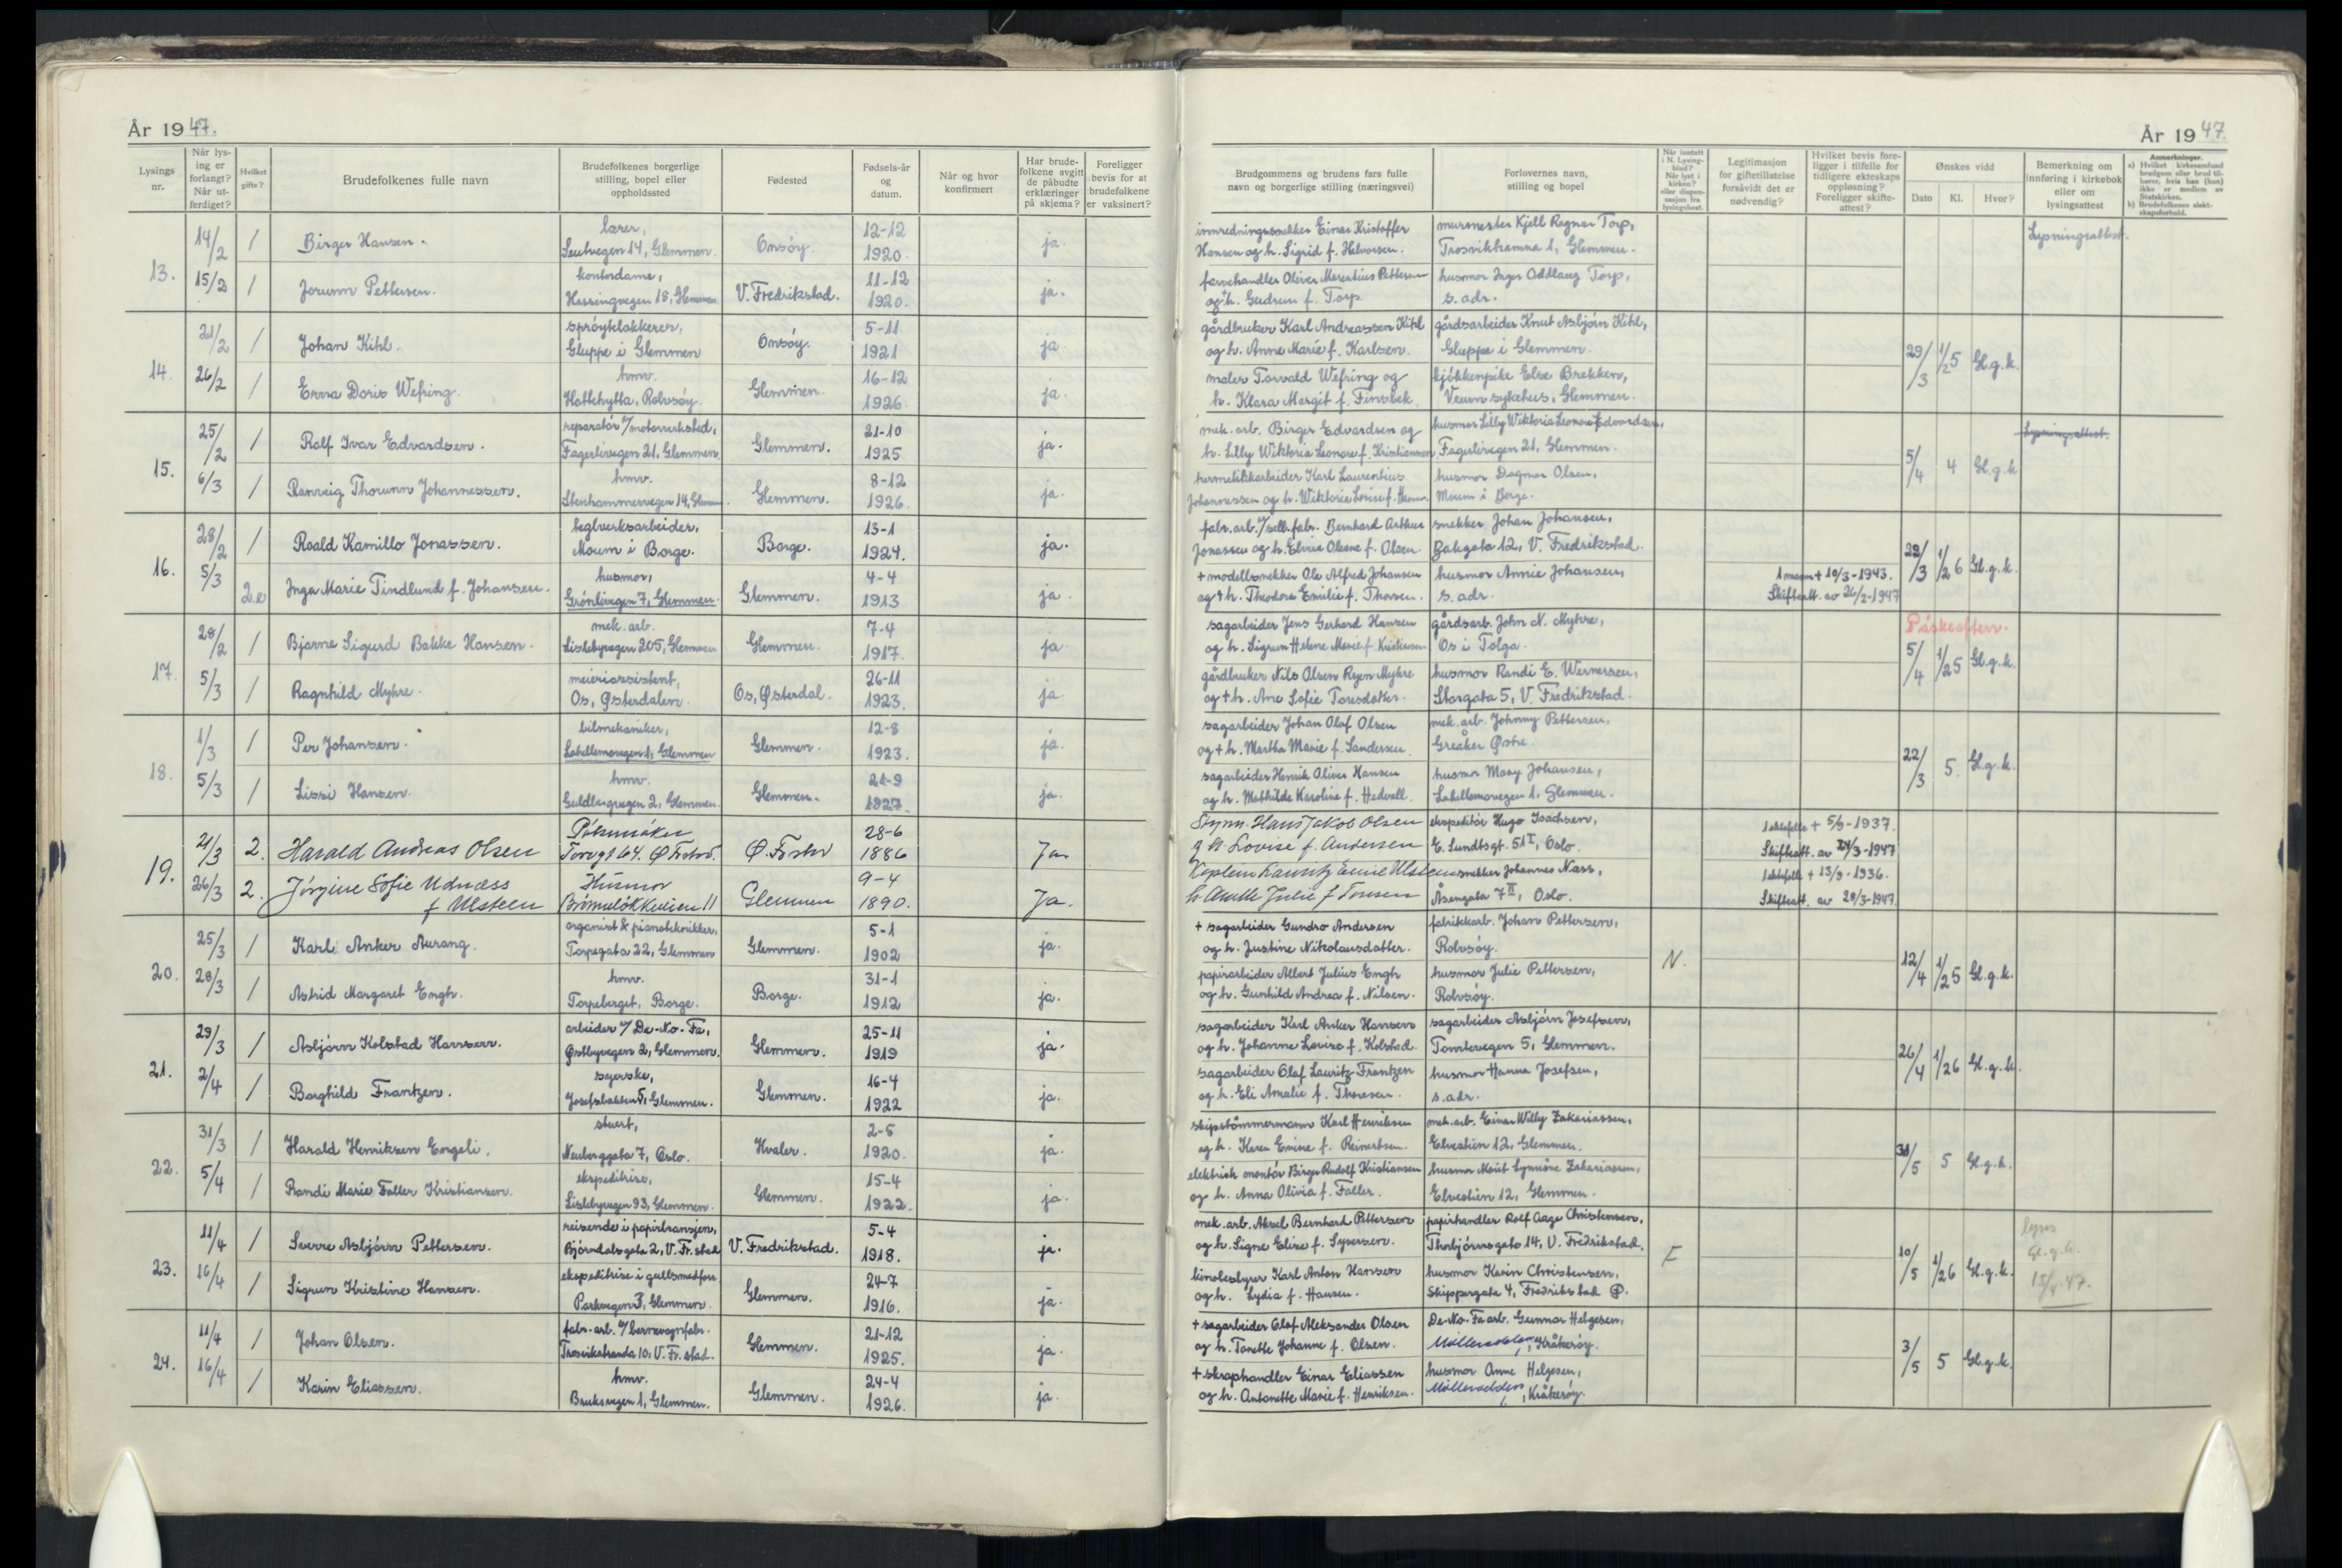 År 1947.
Lysings nr.
Når lysing er forlangt? Når utferdiget?
Hvilket gifte?
Brudefolkenes fulle navn
Brudefolkenes borgerlige stilling, bopel eller oppholdssted
Fødested
Fødsels-år og datum.
Når og hvor konfirmert
Har brudefolkene avgitt de påbudte erklæringer på skjema?
Foreligger bevis for at brudefolkene er vaksinert?
13. 14/2 1 Birger Hansen. lærer, Glemmen. Onsøy. 12-12 1920. ja.
15/2 1 Jorunn Pettersen. kontordame, Hassingvegen 18, Glemmen V. Fredrikstad. 11-12 1920. ja.
14. 21/2 1 Johan Kihl. sprøytelakkerer, Gluppe i Glemmen Onsøy. 5-11 1921 ja.
26/2 1 Erna Doris Wefring. hmv. Hatthytta, Rolvsøy. Glemmen. 16-12 1926. ja.
15. 25/2 1 Rolf Ivar Edvardsen. reparatør v/motorverksted, Fagerlivegen 21, Glemmen. Glemmen. 21-10 1925 ja.
6/3 1 Ranveig Thorunn Johannessen. hmv. Stenhammervegen 14, Glemmen. Glemmen. 8-12 1926. ja.
16. 28/2 1 Roald Kamillo Jonassen. teglverksarbeider, Moum i Borge. Borge. 13-1 1924. ja.
5/3 2.e Inga Marie Tindlund f. Johansen. husmor, Grønlivegen 7, Glemmen. Glemmen. 4-4 1913 ja.
17. 28/2 1 Bjarne Sigurd Bakke Hansen. mek. arb. Lislebyvegen 205, Glemmen Glemmen. 7-4 1917. ja.
5/3 1 Ragnhild Myhre. meieriassistent, Os, Østerdalen. Os, Østerdal. 26-11 1923. ja.
18. 1/3 1 Per Johansen. bilmekaniker, Lahellemovegen 1, Glemmen Glemmen. 12-8 1923. ja.
5/3 1 Lissi Hansen. hmv. Guldbergvegen 2, Glemmen. Glemmen. 1927. ja.
19. 21/3 2. Harald Andreas Olsen Pølsemaker Torvgt 64. Ø. Fr.stad 28-6 1886 Ja
26/3 2. Jørgine Sofie Udnæss f Ulsteen Husmor Glemmen 9-4 1890. Ja.
20. 25/3 1 Karl Anker Aurang. organist & pianotekniker, Torpegata 22, Glemmen Glemmen. 5-1 1902 ja.
28/3 1 Astrid Margaret Engh. hmv. Torpeberget, Borge. Borge. 31-1 1912 ja.
21. 29/3 1 Asbjørn Kolstad Hansen. arbeider v/De-No-Fa, Østbyvegen 2, Glemmen. Glemmen. 25-11 1919 ja.
2/4 1 Borghild Frantzen. syerske, Josefsbakken 5, Glemmen. Glemmen. 16-4 1922 ja.
22. 31/3 1 Harald Henriksen Engeli. stuert, Neuberggata 7, Oslo. Hvaler. 1920. ja.
5/4 1 Randi Marie Faller Kristiansen. ekspeditrise, Lislebyvegen 93, Glemmen. Glemmen. 15-4 1922. ja.
23. 11/4 1 Sverre Asbjørn Pettersen. reisende i papirbransjen, Bjørndalsgata 2, V. Fr.stad V. Fredrikstad. 5-4 1918. ja.
16/4 1 Sigrun Kristine Hansen. ekspeditrise i gullsmedforr. Parkvegen 3, Glemmen. Glemmen. 24-7 1916. ja.
24. 11/4 1 Johan Olsen. fabr.arb. v/barnevognfabr. Trosvikstranda 10, V. Fr.stad. Glemmen. 21-12 1925. ja.
16/4 1 Karin Eliassen. hmv. Bruksvegen 1, Glemmen. Glemmen. 24-4 1926. ja.
År 1947.
Brudgommens og brudens fars fulle navn og borgerlige stilling (næringsvei)
Forlovernes navn, stilling og bopel
Når innsatt i N. Lysingblad? Når lyst i kirken? eller dispensasjon fra lysningsbest.
Legitimasjon for giftetillatelse forsåvidt det er nødvendig?
Hvilket bevis foreligger i tilfelle for tidligere ekteskaps oppløsning? Foreligger skifteattest?
Ønskes vidd
Dato Kl. Hvor?
Bemerkning om innføring i kirkebok eller om lysingsattest
Anmerkninger. a) Hvilket kirkesamfund brudgom eller brud tilhører, hvis han (hun) ikke er medlem av Statskirken. b) Brudefolkenes slektskapsforhold.
innredningssnekker Einar Kristoffer Hansen og h. Sigrid f. Halvorsen. murmester Kjell Ragnar Torp, Trosvikhamna 1, Glemmen. Lysningsattest.
farvehandler Oliver Marentius Pettersen og h. Gudrun f. Torp. husmor Inger Oddlaug Torp, s. adr.
gårdbruker Karl Andreassen Kihl og h. Anne Marie f. Karlsen. gårdsarbeider Knut Asbjørn Kihl, Gluppe i Glemmen. 29/3 1/2 5 Gl.g.k.
maler Torvald Wefring og h. Klara Margit f. Finsbek. kjøkkenpike Else Brekken, Veum sykehus, Glemmen.
mek. arb. Birger Edvardsen og h. Lilly Wiktoria Leonora f. Kristiansen. husmor Lilly Wiktoria Leonora Edvardsen, Fagerlivegen 21, Glemmen. 5/4 4 Gl.g.k Lysningsattest.
hermetikkarbeider Karl Laurentius Johannessen og h. Wiktoria Lovise f. Hansen. husmor Dagmar Olsen, Moum i Borge.
fabr.arb. v/sell.fabr. Bernhard Arthur Jonassen og h. Elvira Olesne f. Olsen snekker Johan Johansen, gata 12, V. Fredrikstad. 29/3 1/2 6 Gl.g.k.
+ modellsnekker Ole Alfred Johansen og + h. Theodora Emilie f. Thorsen. husmor Annie Johansen, s. adr. 1 mann + 10/3-1943. Skifteatt. av 26/2-1947
sagarbeider Jens Gerhard Hansen og h. Sigrun Helene Marie f. Kristiansen gårdsarb. John N. Myhre, Os i Tolga. Påskeaften. 5/4 1/2 5 Gl.g.k.
gårdbruker Nils Olsen Ryen Myhre og + h. Ane Sofie Toresdatter. husmor Randi E. Wernersen, Storgata 5, V. Fredrikstad.
sagarbeider Johan Olaf Olsen og + h. Martha Marie f. Sandersen. mek. arb. Johnny Pettersen, Greåker Østre. 22/3 5. Gl.g.k.
sagarbeider Henrik Oliver Hansen og h. Mathilde Karoline f. Hedvall. husmor Mary Johansen, Lahellemovegen 1, Glemmen.
Hans Jakob Olsen g h. Lovise f. Andersen ekspeditør Hugo Isachsen, E. Sundtsgt. 51 I, Oslo. 1 ektefelle + 5/9-1937. Skifteatt. av 21/3-1947
Kaptein Lauritz Emil Ulsteen h. Julie f snekker Johannes Næss, Åsengata 7 II, Oslo. 1 ektefelle + 13/9-1936. Skifteatt. av 28/3-1947.
+ sagarbeider Gundro Andersen og h. Justine Nikolausdatter. fabrikkarb. Johan Pettersen, Rolvsøy. N. 12/4 1/2 5 Gl.g.k.
papirarbeider Albert Julius Engh og h. Gunhild Andrea f. Nilsen. husmor Julie Pettersen, Rolvsøy.
sagarbeider Karl Anker Hansen og h. Johanne Lovise f. Kolstad. sagarbeider Asbjørn Josefsen, Tomtevegen 5, Glemmen. 26/4 1/2 6 Gl.g.k.
sagarbeider Olaf Lauritz Frantzen og h. Eli Amalie f. Thoresen. husmor Hanna Josefsen, s. adr.
skipstømmermann Karl Henriksen og h. Karen Emine f. Reinertsen. mek. arb. Einar Willy Zakariassen, Elvestien 12, Glemmen. 5 Gl.g.k.
elektrisk montør Birger Rudolf Kristiansen og h. Anna Olivia f. Faller. husmor Zakariassen, Elvestien 12, Glemmen.
mek. arb. Aksel Bernhard Pettersen og h. Signe Elise f. Syversen. papirhandler Rolf Aage Christensen, Thorbjørnsgata 14, V. Fredrikstad. F 10/5 1/2 6 Gl.g.k. lyses Gl.g.k. 15/4 47.
kinobestyrer Karl Anton Hansen og h. Lydia f. Hansen. husmor Karin Christensen, Skippergata 4, Fredrikstad Ø.
+ sagarbeider Olaf Aleksander Olsen og h. Tanette Johanne f. Olsen. De-No-Fa arb. Gunnar Helgesen, Mølleråddden, Kråkerøy. 3/5 5 Gl.g.k.
+ skraphandler Einar Eliassen og h. Antonette Marie f. Henriksen. husmor Anne Helgesen, Kråkerøy.